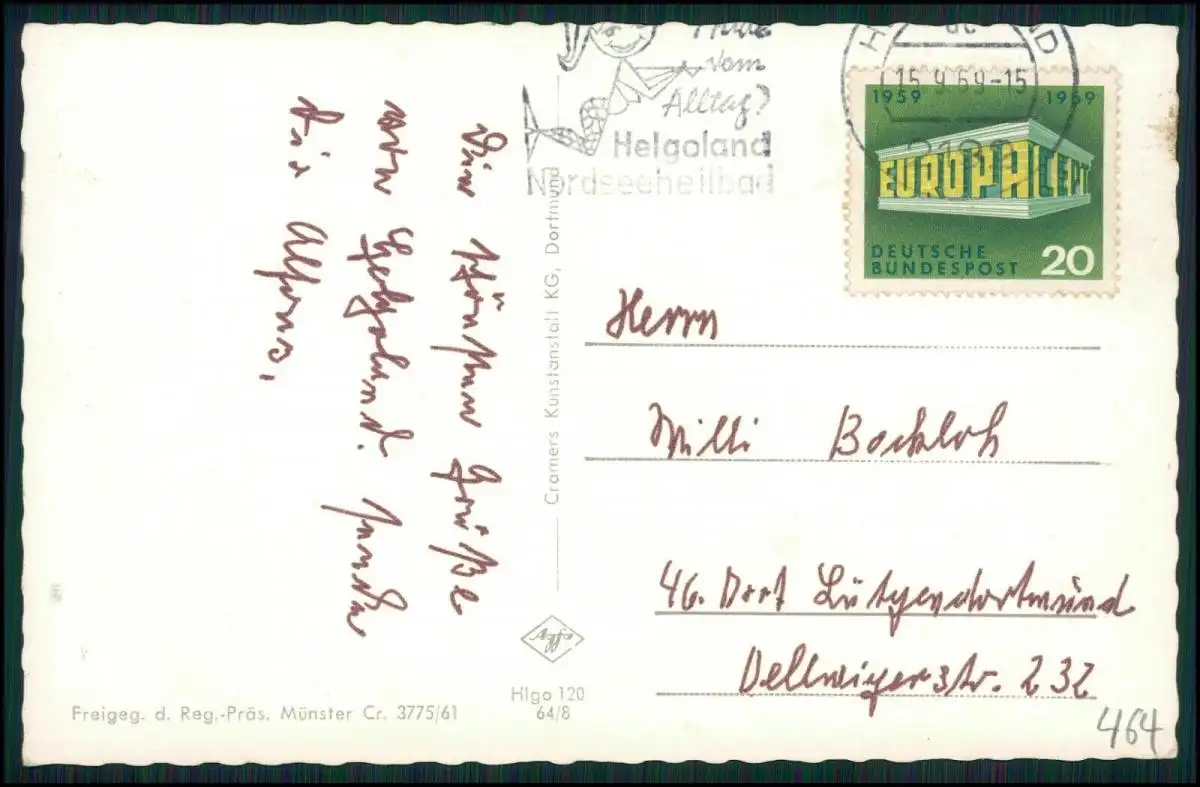 vom
Alltag?
Helgoland
Nordseeheilbad
15.9.69-15
1959 1969
EUROPA CEPT
DEUTSCHE
BUNDESPOST 20
Die schönsten Grüße
von Helgoland. sendet
Dir Alfons,
Cramers Kunstanstalt KG, Dortmund
Herrn
Willi Bockloh
46. Dort Lütgendortmund
Dellwigerstr. 232
Agfa
Hlgo 120
64/8
Freigeg. d. Reg.-Präs. Münster Cr. 3775/61
464